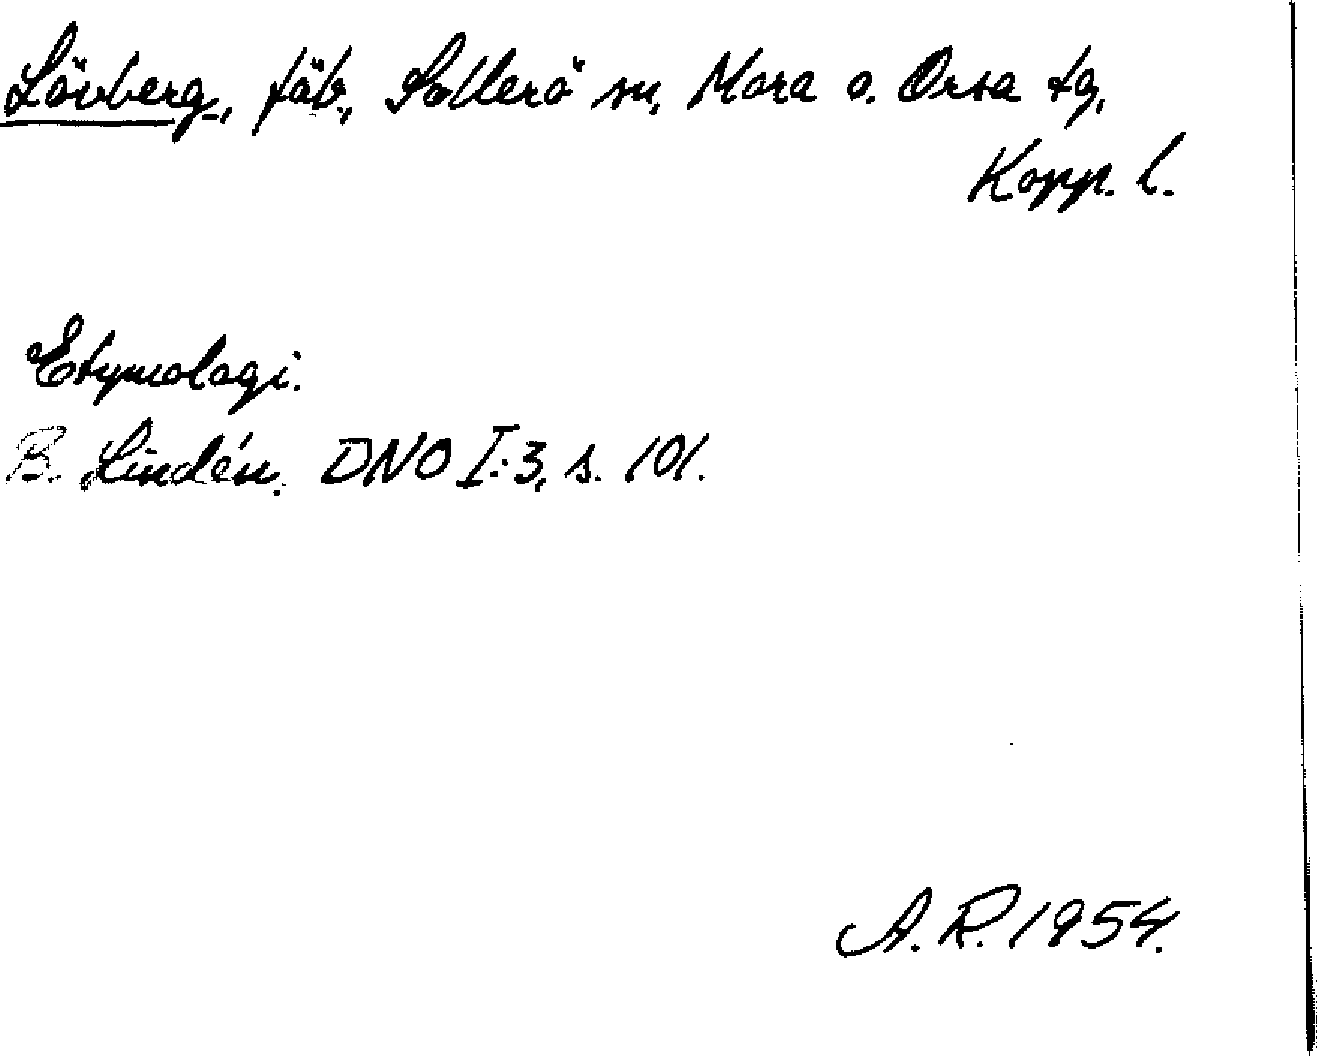 Lövberg, fäb., Sollerö sn, Mora o. Orsa tg,
Kopp. l.
Etymologi.
B. Lindén. DNO I:3, s. 101.
A.R. 1954.